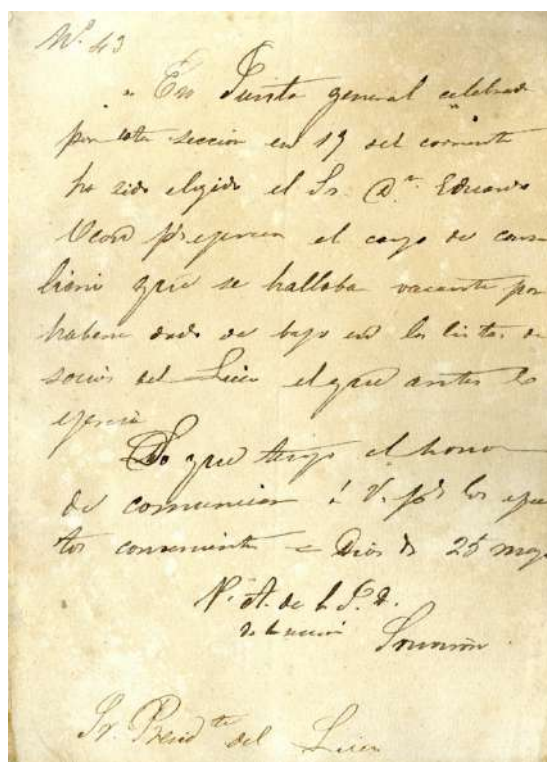 Nº 43
" En Junta general celebrada
por esta seccion en 19 del corriente
ha sido eligido el Sr. Dn. Eduardo
p.ª ejercer el cargo de consi
liario que se hallaba vacante por
haberse dado de baja en la lista de
socios del Liceo el que antes lo
ejercia
Lo que tengo el honor
de comunicar á V. para los efec
tos convenientes = Dios &. 25 mayo
P. A. de la J. D.
de la seccion
Sr. Presidte del Liceo